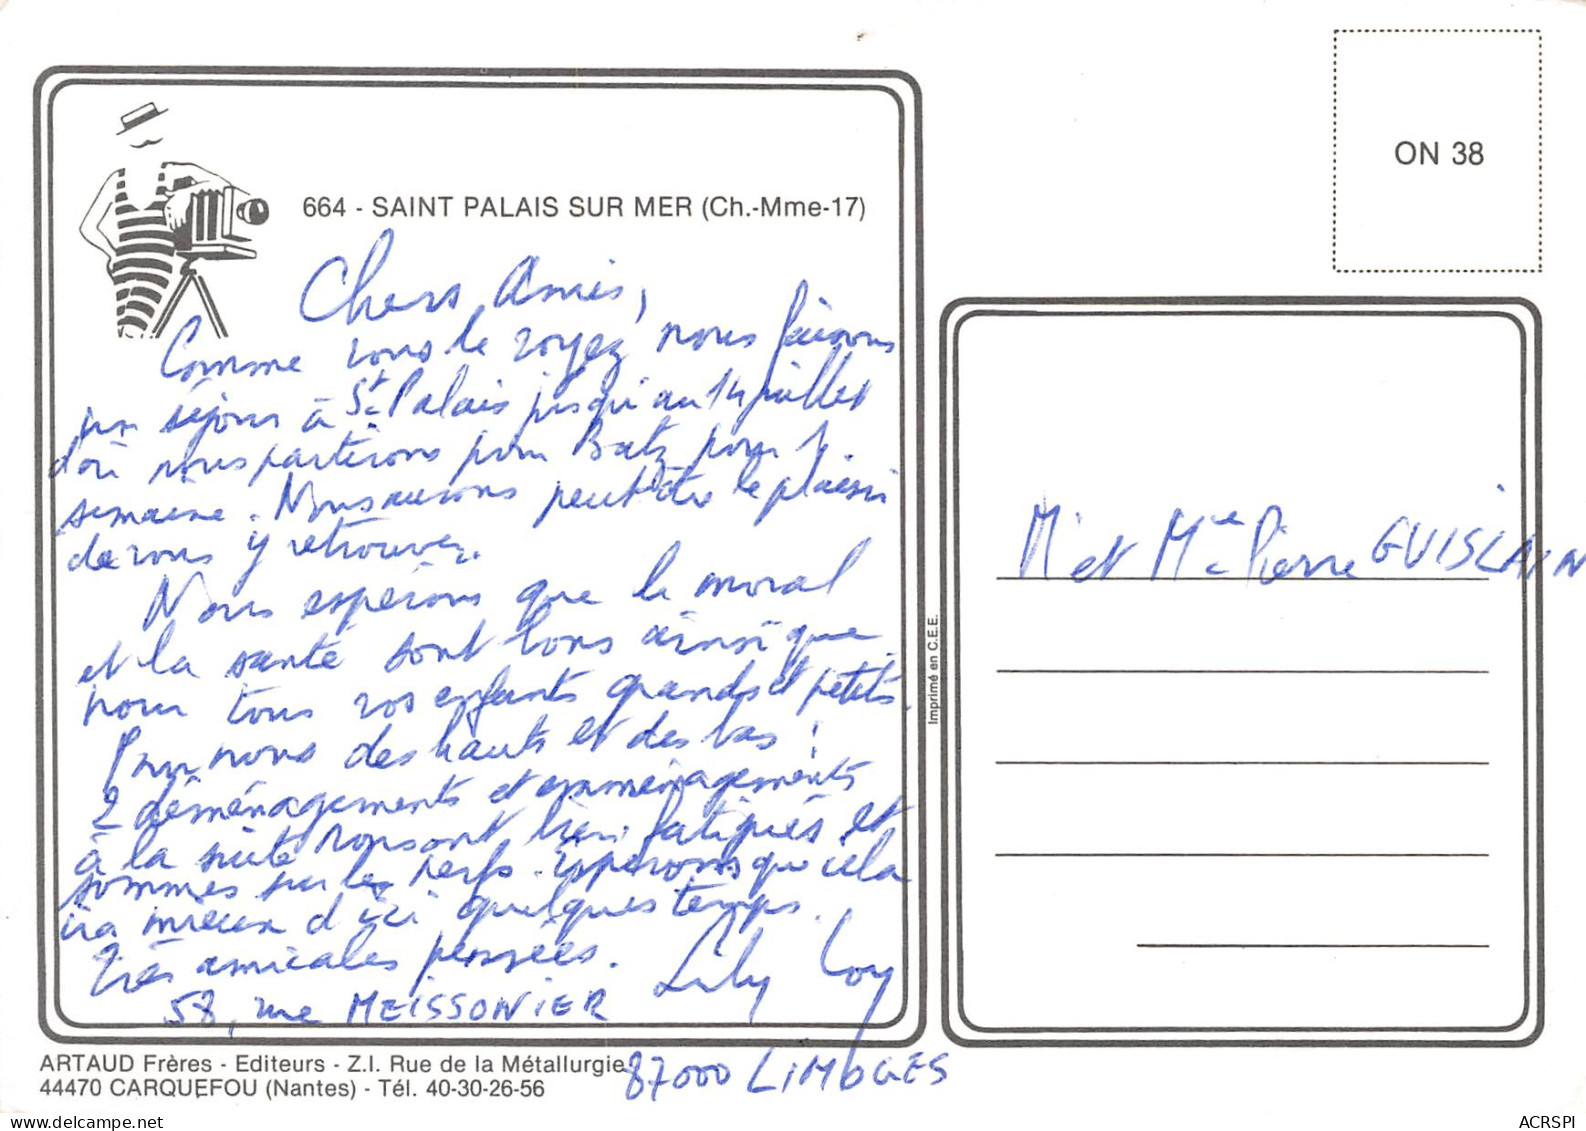 664 - SAINT PALAIS SUR MER (Ch.-Mme-17)
Chers Amis,
Comme vous le voyez nous faisons
un séjour à St Palais jusqu'au 14 juillet
d'où nous partirons pour Batz pour 1
semaine. Nous aurons peut être le plaisir
de vous y retrouver.
Nous espérons que le moral
et la santé sont bons ainsi que
pour tous vos enfants grands et petits.
Pour nous des hauts et des bas :
2 déménagements et emménagements
à la suite nous ont bien fatigués et
sommes sur les nerfs. Espérons que cela
ira mieux d'ici quelques temps.
Très amicales pensées.
58, rue MEISSONIER
87000 LIMOGES
ON 38
Mr et Mme Pierre GUISLAIN
Imprimé en C.E.E.
ARTAUD Frères - Editeurs - Z.I. Rue de la Métallurgie
44470 CARQUEFOU (Nantes) - Tél. 40-30-26-56
ACRSPI